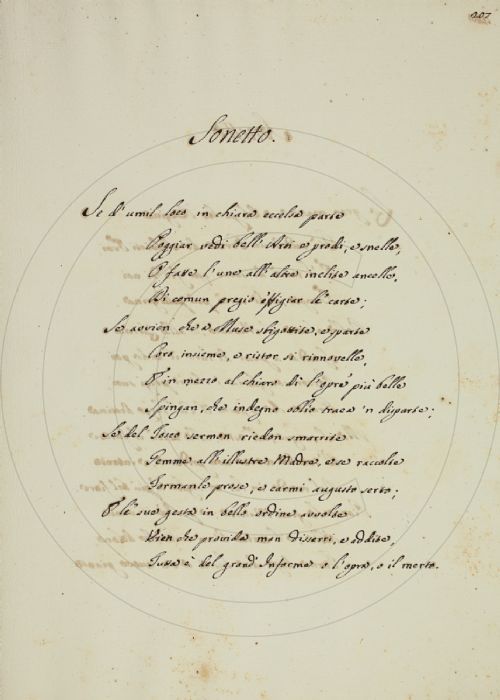 207
Sonetto.
Se d'umil loco in chiara eccelsa parte
Poggiar vedi bell'Arti e prodi, e snelle,
E fatte l'une all'altre inclite ancelle,
Di comun pregio effigiar le carte;
Se avvien che a Muse sbigottite, e sparte
Coro insieme, e ristor si rinnovelle,
E in mezzo al chiaro dì l'opre più belle
Spingan, che indegno oblio traea 'n disparte;
Se del Tosco sermon riedon smarrite
Gemme all'illustre Madre, e se raccolte
Formanle prose, e carmi augusto serto;
E le sue gesta in bello ordine avvolte
Vien che provida man disserri, e addite,
Tutta è del grand'Informe o l'opra, o il merto.